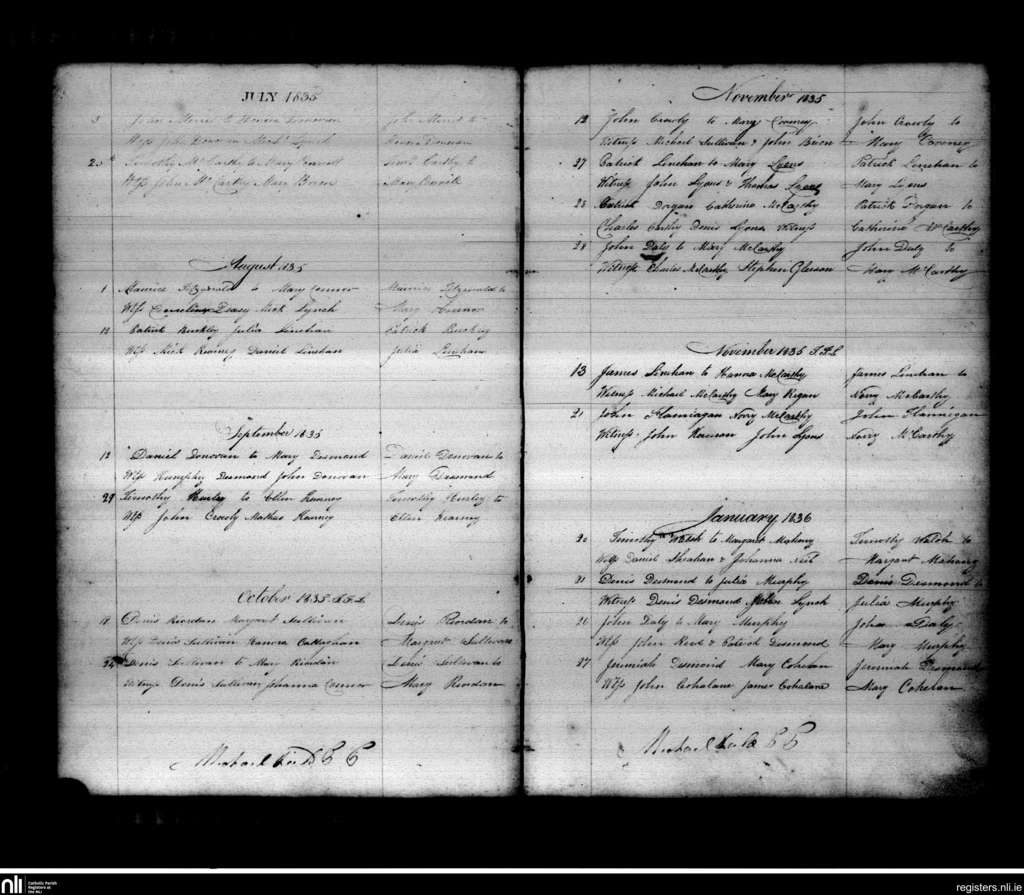 JULY 1835
3 John to Honora Donovan John to
Wtss John Donovan Mich. Lynch Honora Donovan
Timothy McCarthy to Mary Carthy to
Wtss John McCarthy Mary Mary
August 1835
1 Maurice Fitzgerald to Mary Connor Maurice Fitzgerald to
Wtss Cornelius Deasy Mick Lynch Mary
Patrick Buckley Julia Linehan Patrick Buckley
Wtss Mick Kearney Daniel Linehan Julia Linehan
September 1835
12 Daniel Donovan to Mary Desmond Daniel Donovan to
Wtss Humphry Desmond John Donovan Mary Desmond
29 Timothy Hurley to Ellen Kearney Timothy Hurley to
Wtss John Crowly Mathias Kearney Ellen Kearney
October 1835
18 Denis Riordan Margaret Sullivan Denis Riordan to
Wtss Denis Sullivan Hanora Callaghan Margaret Sullivan
24 Denis Sullivan to Mary Riordan Denis Sullivan to
Witness Denis Sullivan Johanna Connor Mary Riordan
Michael C C
November 1835
12 John Crowly to Mary Cooney John Crowly to
Witness Michael Sullivan & John Brien Mary Cooney
27 Patrick Linehan to Mary Lyons Patrick Linehan to
Witness John Lyons & Thomas Mary Lyons
Patrick Dorgan Catherine McCarthy Patrick Dorgan to
Charles Carthy Denis Lyons Witness Catherine McCarthy
28 John Daly to Mary McCarthy John Daly to
Witness Charles McCarthy Stephen Gleeson Mary McCarthy
November 1835
13 James Linehan to Hanora McCarthy James Linehan to
Witness Michael McCarthy Mary Regan Nory McCarthy
21 John Flannigan Nory McCarthy John Flannigan
Witness John John Lyons Nory McCarthy
January 1836
20 Timothy Welsh to Margaret Mahony Timothy Welsh to
Wtss Daniel Sheahan & Johanna Neil Margaret Mahony
21 Denis Desmond to Julia Murphy Denis Desmond to
Witness Denis Desmond Lynch Julia Murphy
26 John Daly to Mary Murphy John Daly
Wtss John & Patrick Desmond Mary Murphy
27 Jeremiah Desmond Mary Cohelan Jeremiah Desmond
Wtss John Cohalane James Cohalane Mary Cohelan
Michael C C
nli
Catholic Parish
Registers at
the NLI
registers.nli.ie